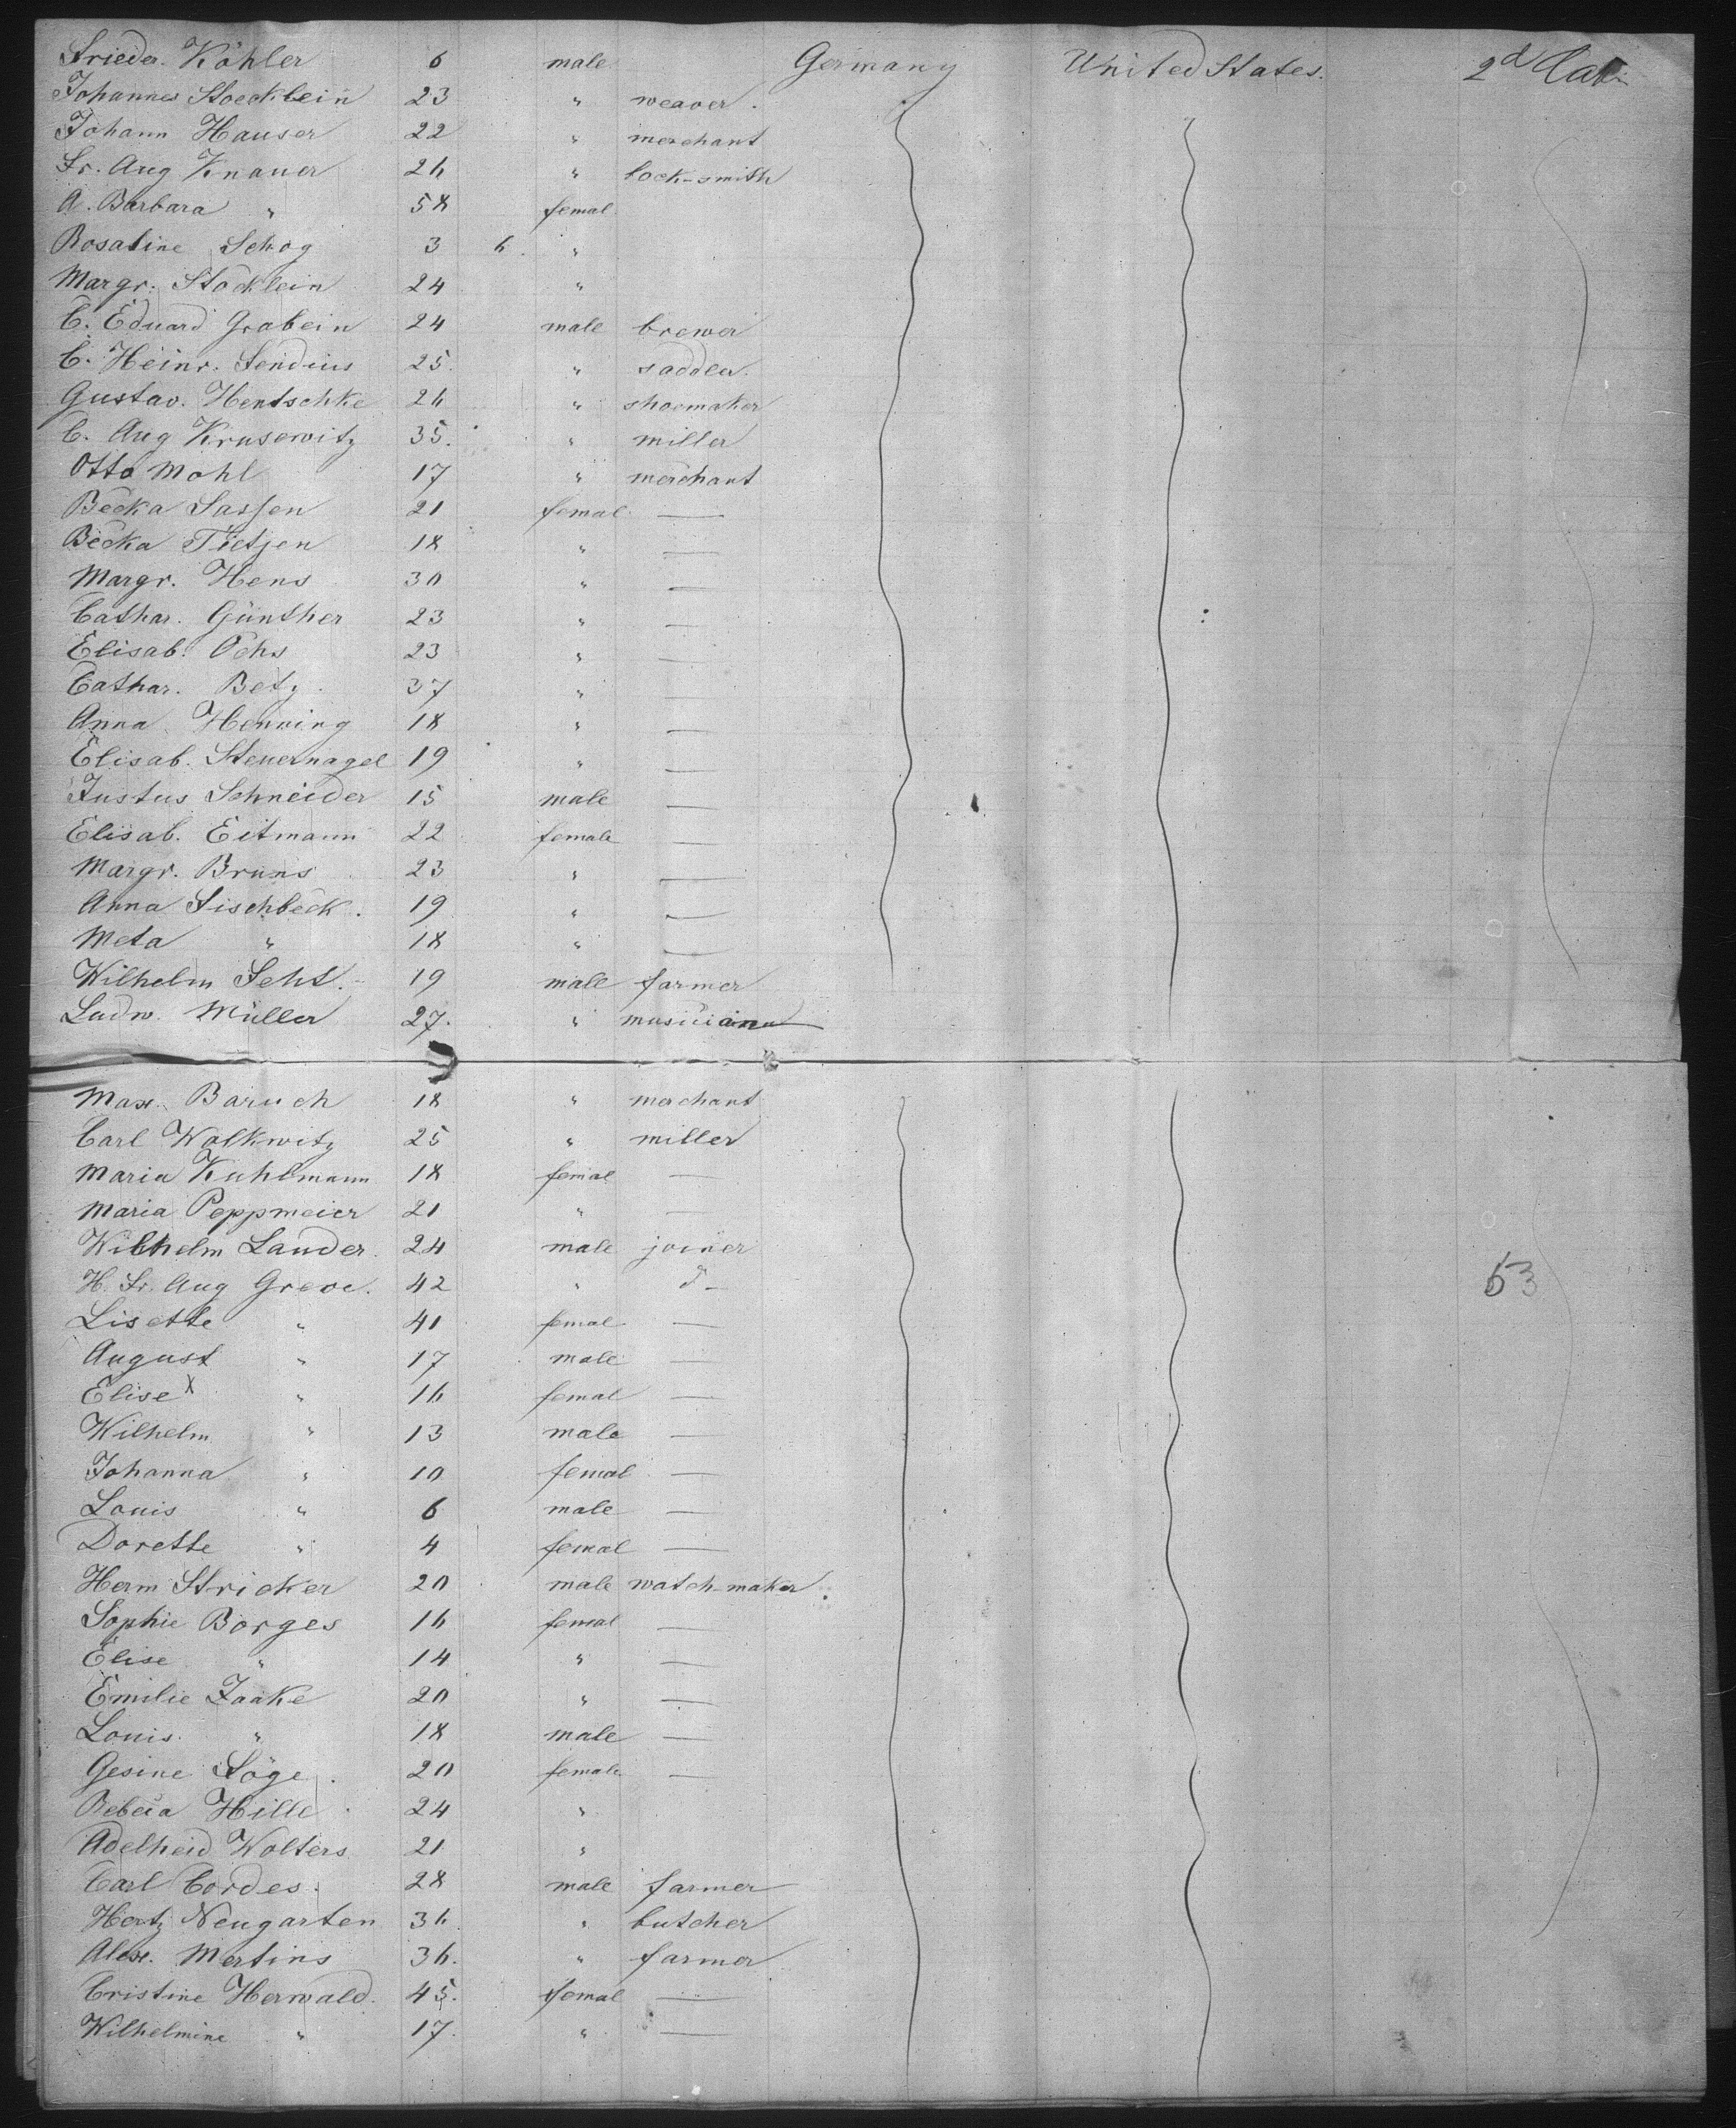 Frieder. Köhler 6 male Germany United States. 2d Cab.
Johannes Stoecklein 23 " weaver.
Johann Hauser 22 " merchant
Fr. Aug Knauer 26 " lock-smith
A. Barbara " 58 femal
Rosaline Schog 3 6. "
Margr. Stöcklein 24 "
C. Eduard Grabein 24 male brewer
C. Heinr. Sendius 25. " saddler.
Gustav. Hentschke 26 " shoemaker
C. Aug Krusewitz 35. " miller
Otto Mohl 17 " merchant
Becka Sassen 21 femal —
Becka Tietjen 18 " —
Margr. Hens 30 " —
Cathar. Günther 23 " —
Elisab. Ochs 23 " —
Cathar. Betz 37 " —
Anna Henning 18 " —
Elisab. Steuernagel 19 " —
Justus Schneider 15 male —
Elisab. Eitmann 22 female —
Margr. Bruns 23 " —
Anna Fischbeck. 19 " —
Meta " 18 " —
Wilhelm Feht. 19 male farmer
Ludw. Müller 27. " musician
Max. Baruch 18 " merchant
Carl Wolkwitz 25 " miller
Maria Kuhlmann 18 femal —
Maria Peppmeier 21 " —
Wilhelm Lauder. 24 male joiner
H. Fr. Aug Greve. 42 " d— 63
Lisette " 41 femal —
August " 17 male —
Elise x " 16 femal —
Wilhelm " 13 male —
Johanna " 10 femal —
Louis " 6 male —
Dorette " 4 femal —
Herm Stricker 20 male watch-maker
Sophie Borges 16 femal —
Elise " 14 " —
Emilie Jaake 20 " —
Louis " 18 male —
Gesine Föge. 20 female —
Rebeca Hille 24 "
Adelheid Wolters 21 "
Carl Cordes. 28 male farmer
Hertz Neugarten 36. " butcher
Alex. Mertins 36. " farmer
Cristine Herwald. 45. femal —
Wilhelmine " 17. " —